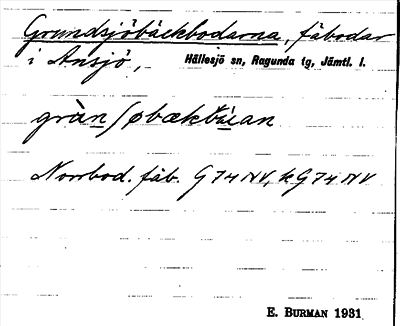 Grundsjöbäckbodarna, fäbodar
i Ansjö, Hällesjö sn, Ragunda tg, Jämtl. l.
Norrbod. fäb. G74NV, kG74NV
E. BURMAN 1931